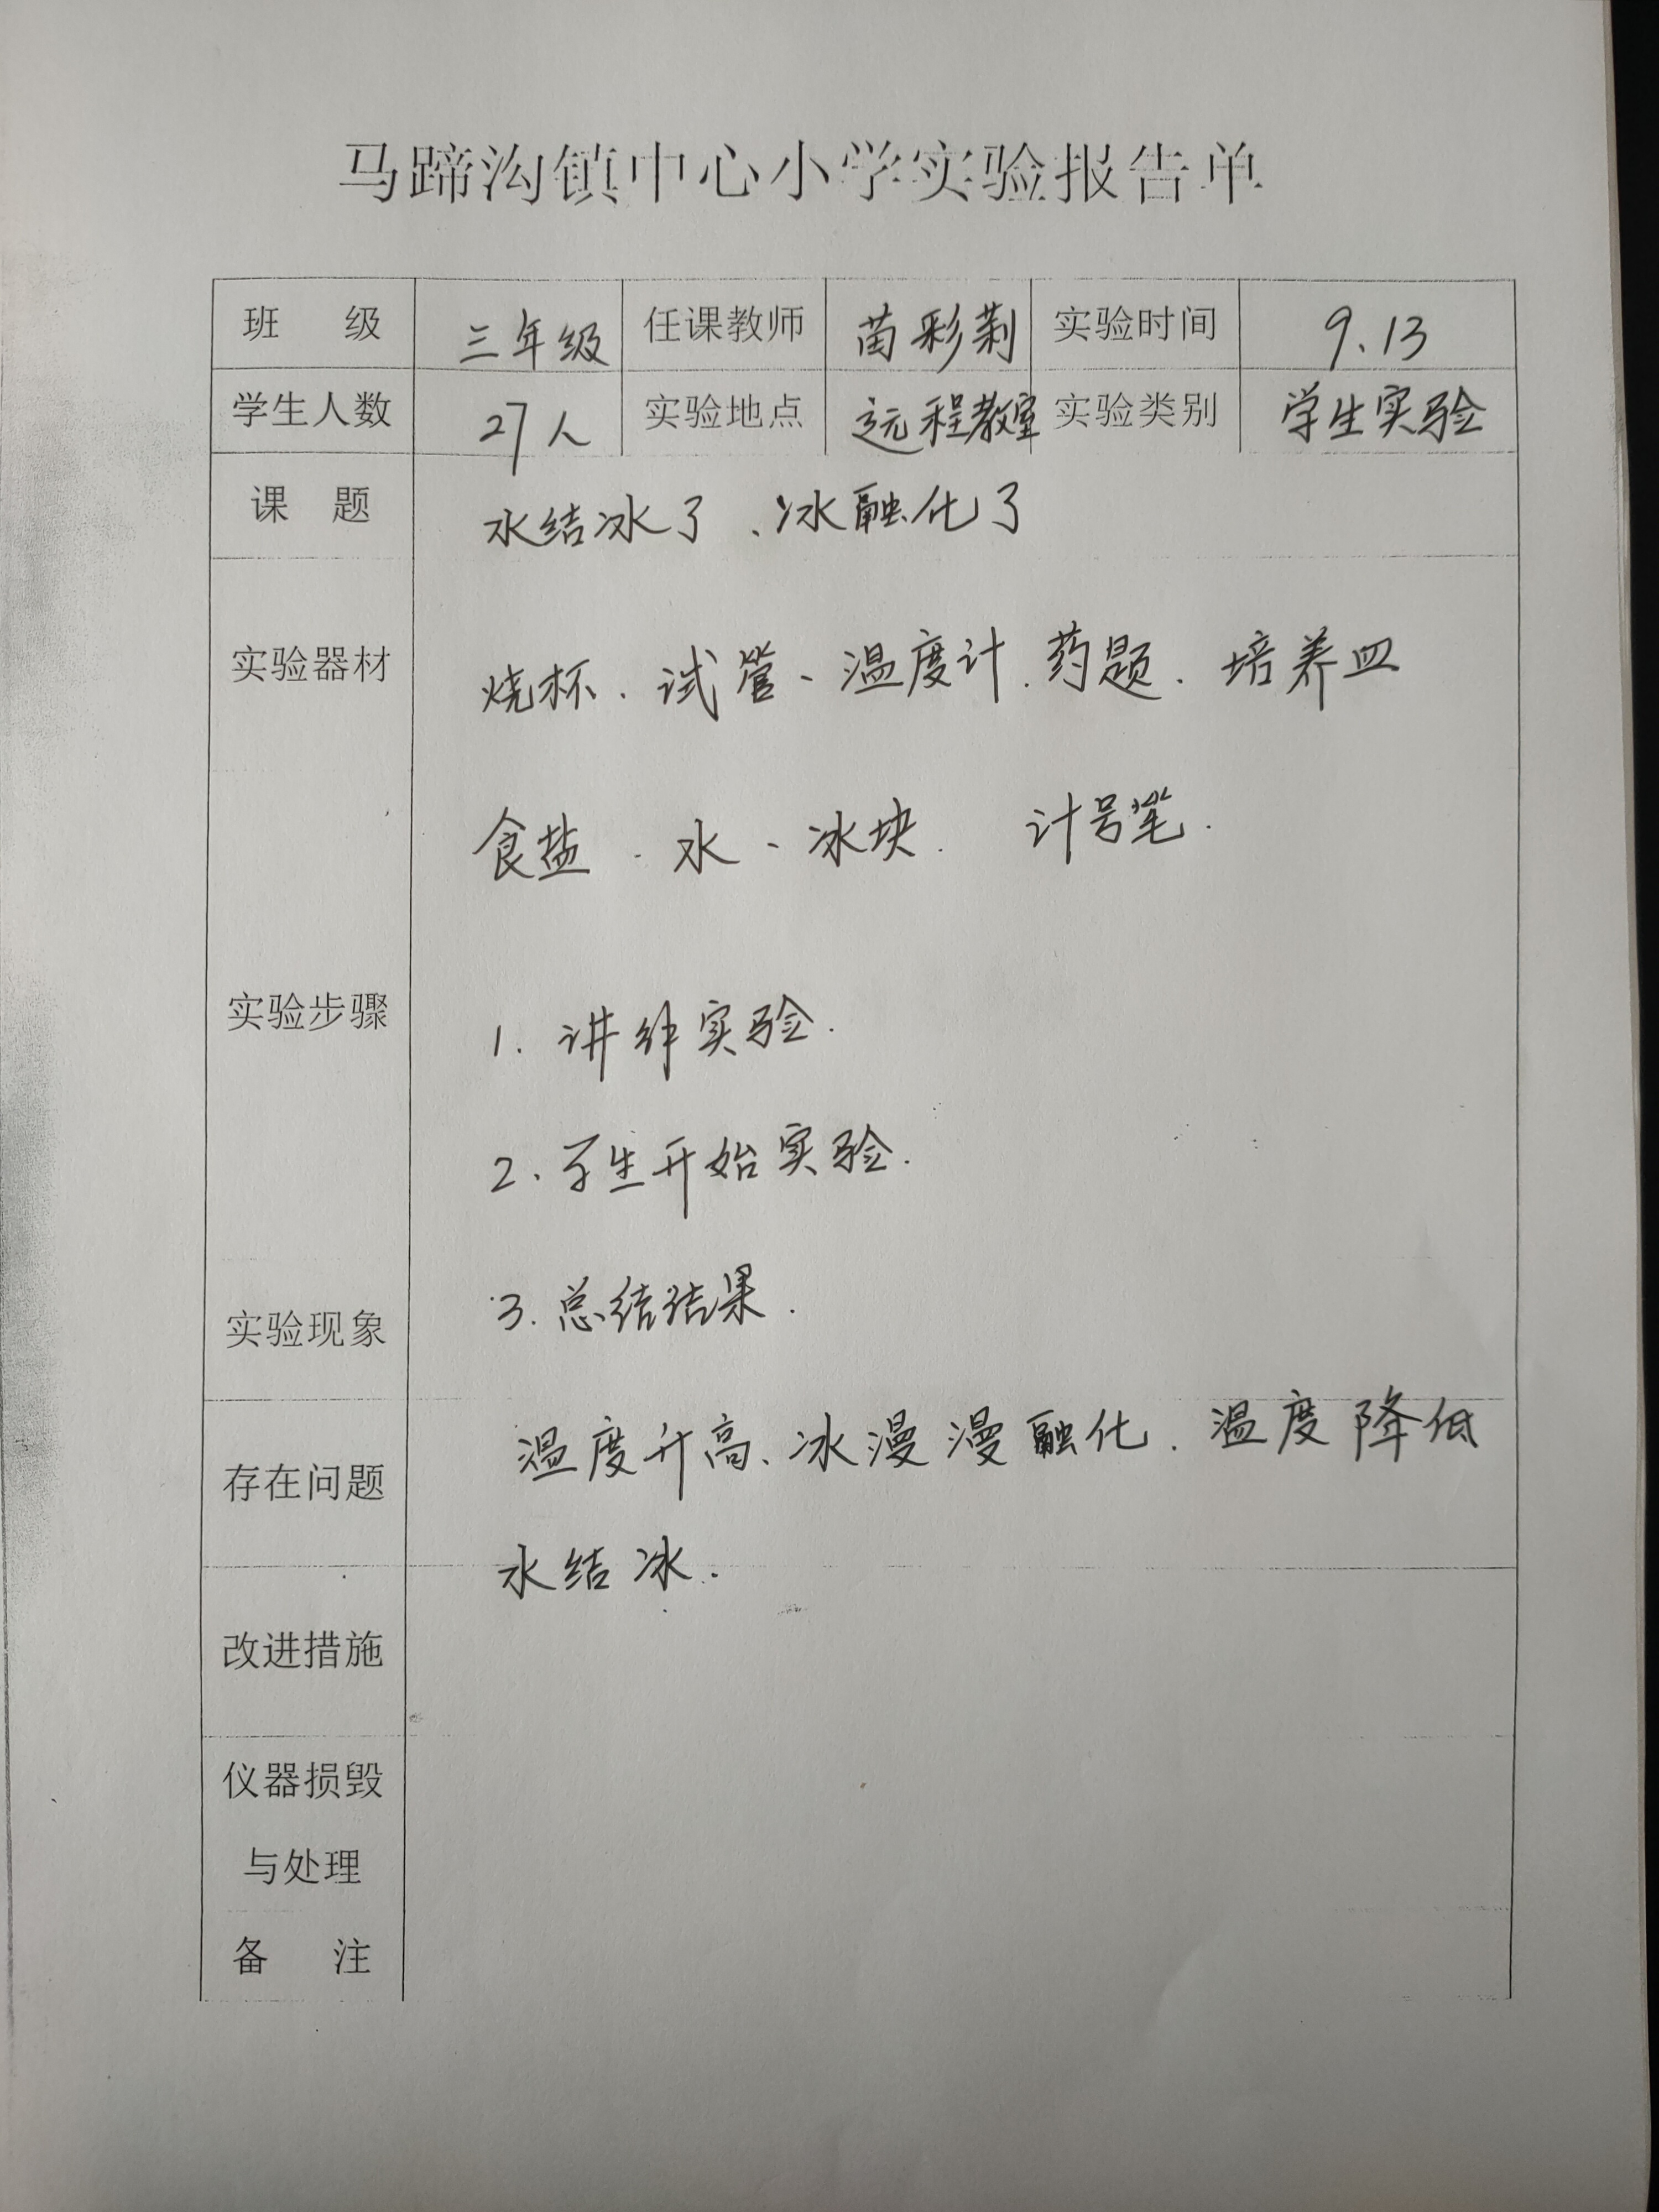 马蹄沟镇中心小学实验报告单
班 级 三年级 任课教师 苗彩莉 实验时间 9.13
学生人数 27人 实验地点 远程教室 实验类别 学生实验
课 题 水结冰了、冰融化了
实验器材 烧杯、试管、温度计、药题、培养皿
食盐、水、冰块、计号笔.
实验步骤 1. 讲解实验.
2. 学生开始实验.
3. 总结结果.
实验现象
温度升高、冰漫漫融化、温度降低
存在问题
水结冰.
改进措施
仪器损毁
与处理
备 注